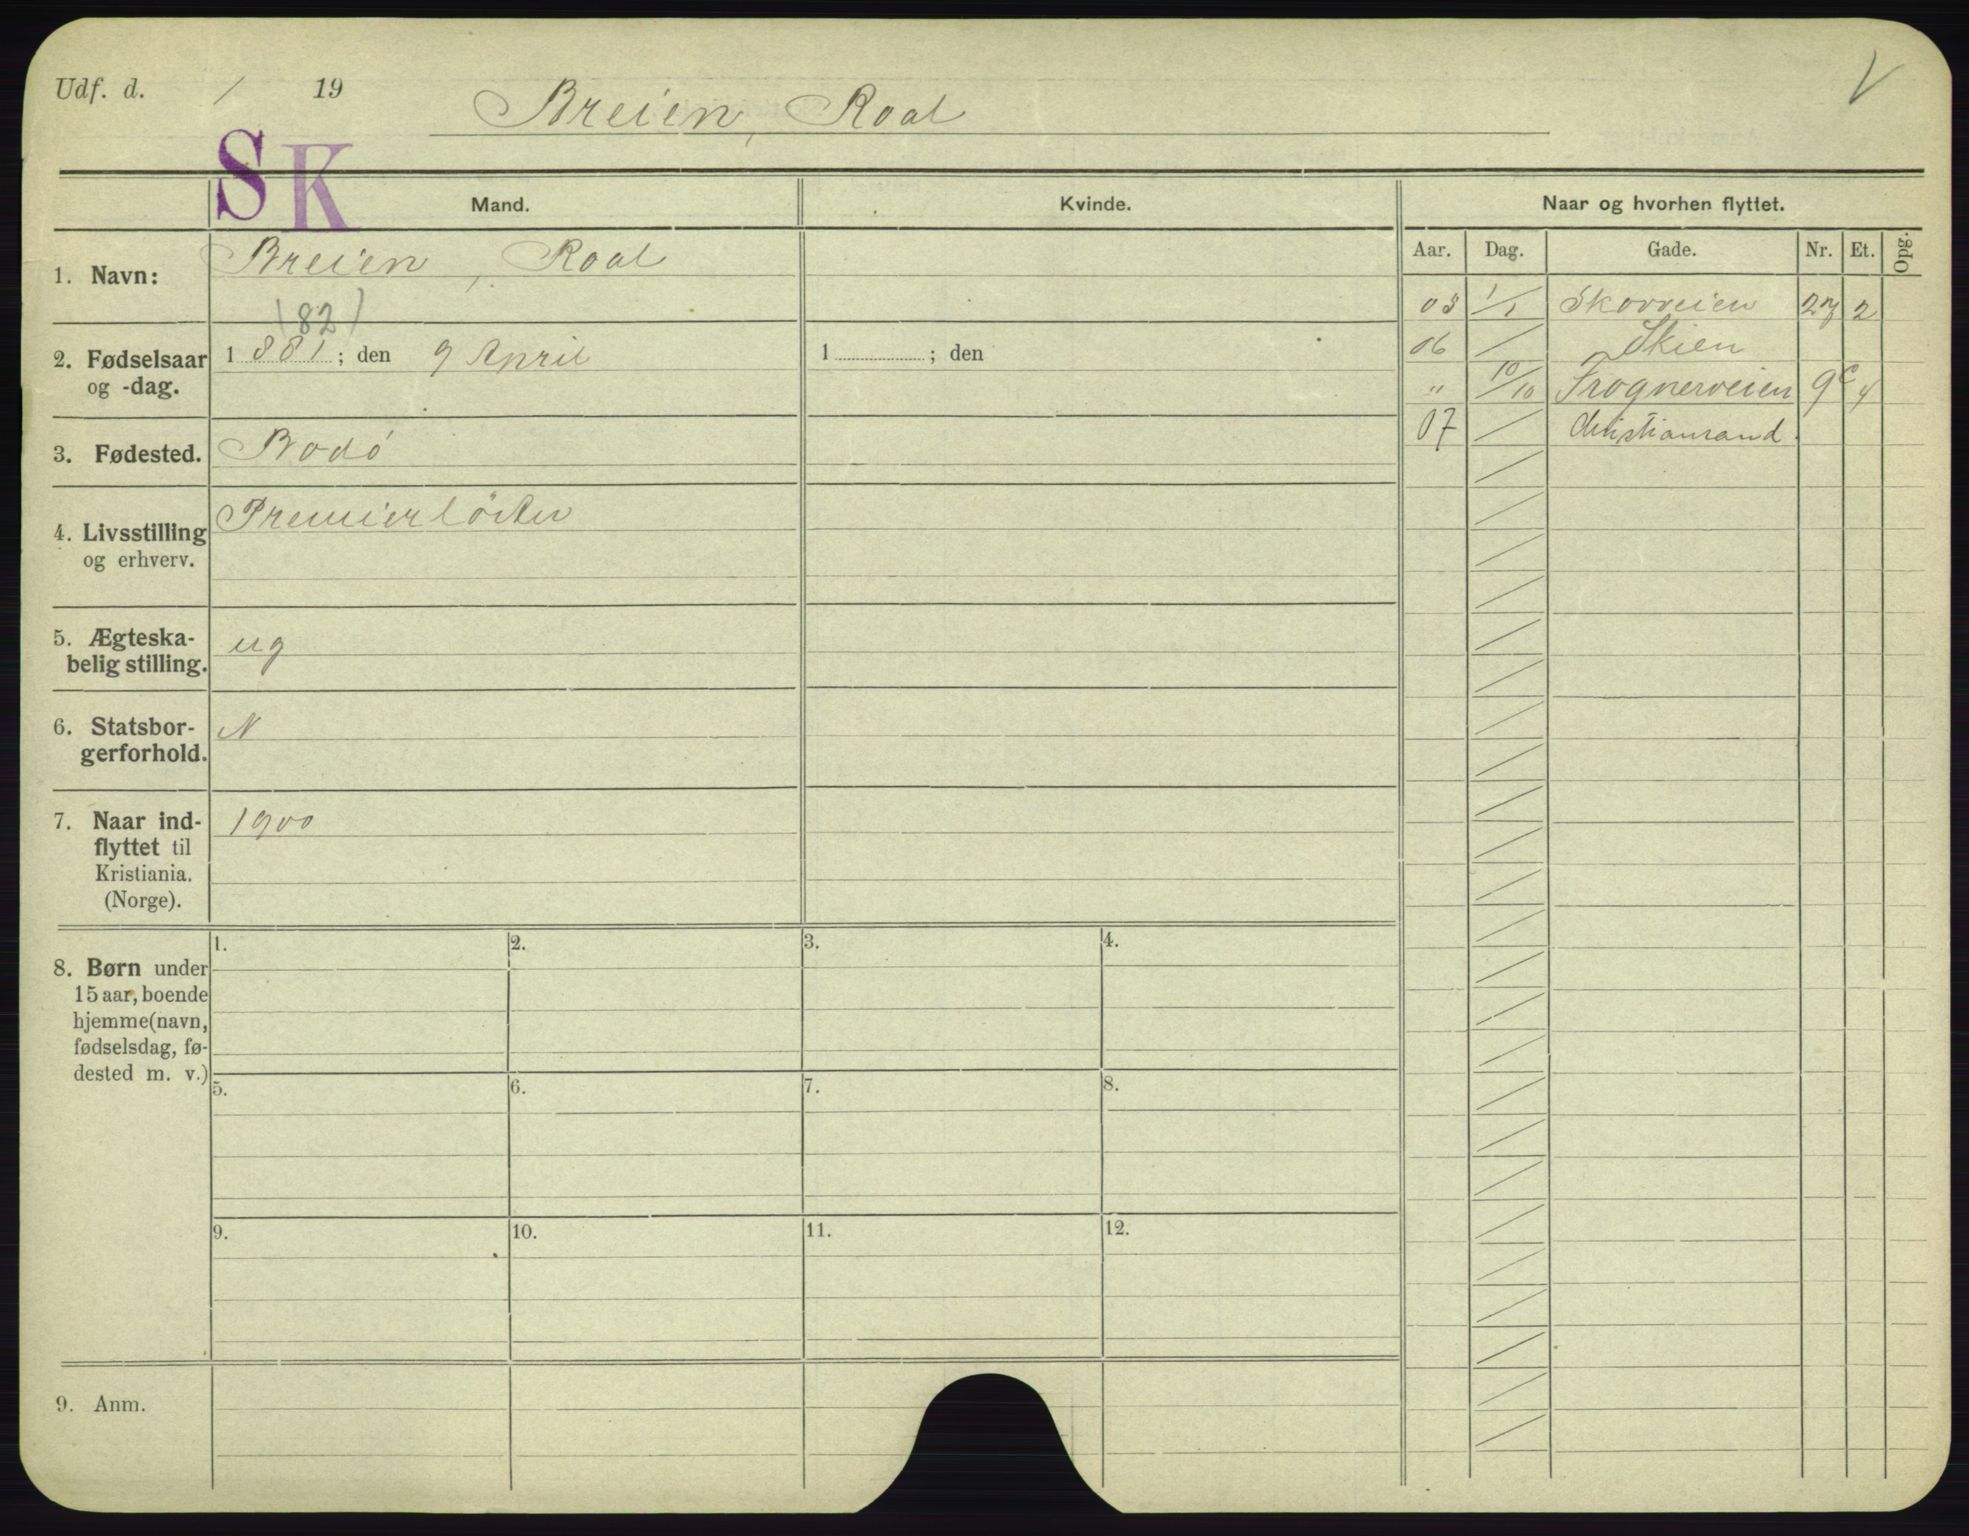 Udf. d. / 19
Breien, Roal
V
SK
Mand.
Kvinde.
Naar og hvorhen flyttet.
Aar. Dag. Gade. Nr. Et. Opg.
1. Navn: Breien, Roal
(82)
2. Fødselsaar og -dag. 1881; den 9 April
1 ; den
3. Fødested. Bodø
4. Livsstilling og erhverv. Premierlöitn
5. Ægteska-
belig stilling. ug
6. Statsbor-
gerforhold. N
7. Naar ind-
flyttet til
Kristiania.
(Norge). 1900
8. Børn under
15 aar, boende
hjemme (navn,
fødselsdag, fø-
dested m. v.)
1. 2. 3. 4.
5. 6. 7. 8.
9. 10. 11. 12.
9. Anm.
05 1/1 Skovveien 27 2
06 / Skien
" 10/10 Frognerveien 9c 4
07 / Christiansand.